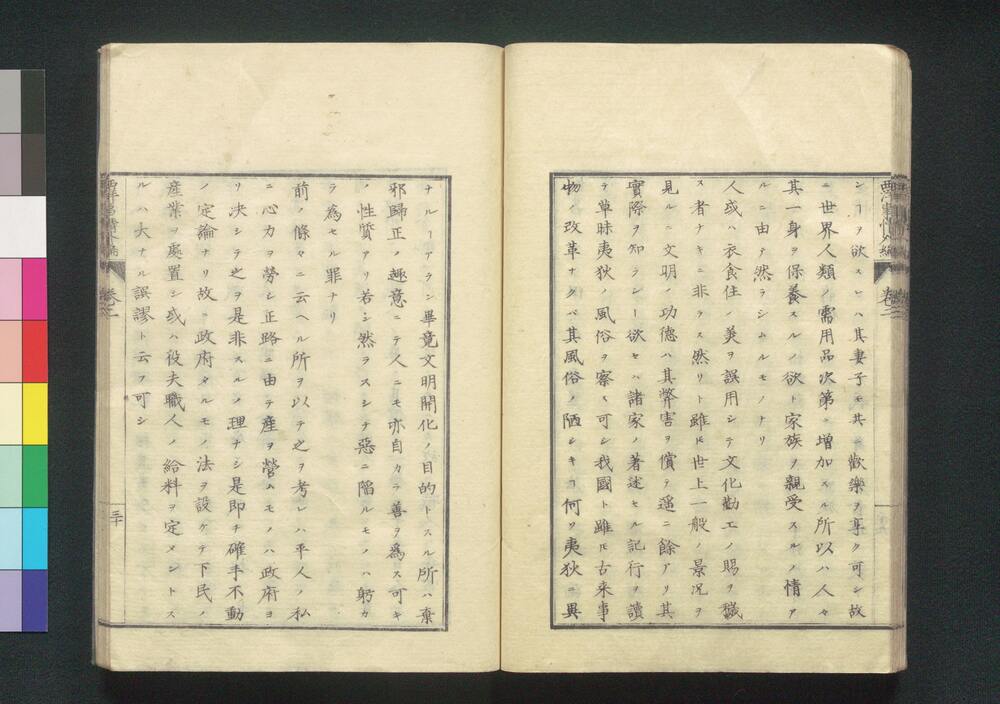 シヿヲ欲スレハ其妻子モ共ニ歡樂ヲ享ク可シ故
ニ世界人類ノ需用品次第ニ増加スル所以ハ人々
其一身ヲ保養スルノ欲ト家族ヲ親愛スルノ情ア
ルニ由テ然ラシムルモノナリ
人或ハ衣食住ノ美ヲ誤用シテ文化勸工ノ賜ヲ穢
ス者ナキニ非ラス然リト雖𪜈世上一般ノ景況ヲ
見ルニ文明ノ功德ハ其弊害ヲ償テ遥ニ餘アリ其
實際ヲ知ラント欲セハ諸家ノ著述セル記行ヲ讀
テ草昧夷狄ノ風俗ヲ察ス可シ我國ト雖𪜈古来事
物ノ改革ナクバ其風俗ノ陋シキヿ何ソ夷狄ニ異
西洋事情外編
卷三
ナルヿアラン畢竟文明開化ノ目的トスル所ハ棄
邪歸正ノ趣意ニテ人ニモ亦自カラ善ヲ為ス可キ
ノ性質アリ若シ然ラスシテ惡ニ陥ルモノハ躬カ
ラ為セル罪ナリ
前ノ條々ニ云ヘル所ヲ以テ之ヲ考レハ平人ノ私
ニ心力ヲ勞シ正路ニ由テ産ヲ營ムモノハ政府ヨ
リ决シテ之ヲ是非スルノ理ナシ是即チ確乎不動
ノ定論ナリ故ニ政府タルモノ法ヲ設ケテ下民ノ
産業ヲ處置シ或ハ役夫職人ノ給料ヲ定メントス
ルハ大ナル誤謬ト云フ可シ
西洋事情外編
卷三
三十